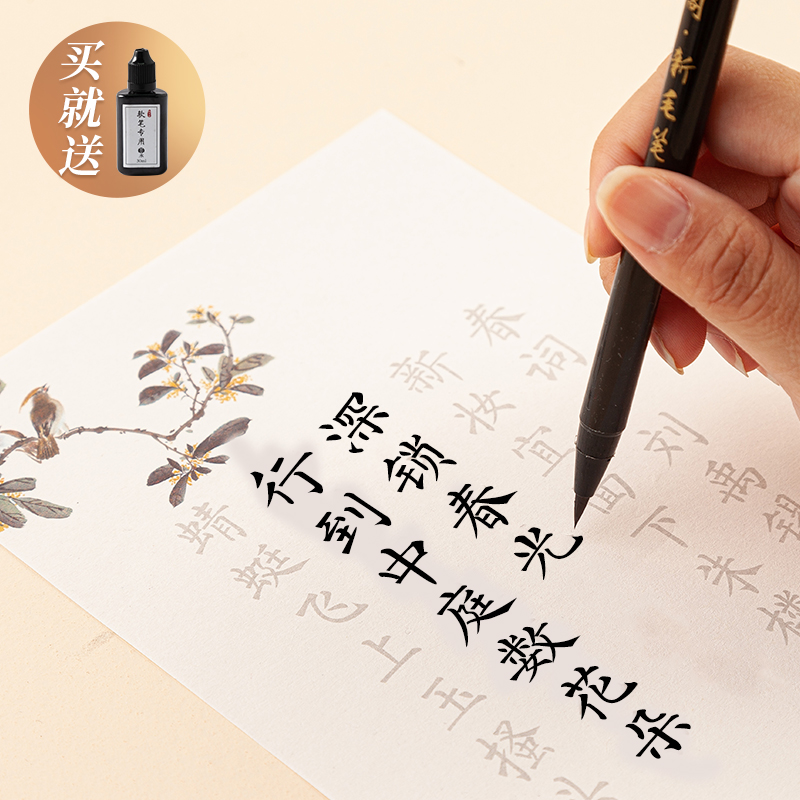 买就送
软笔专用
30ml
新毛笔
春词 刘禹锡
新妆宜面下朱楼
深锁春光
行到中庭数花朵
蜻蜓飞上玉搔